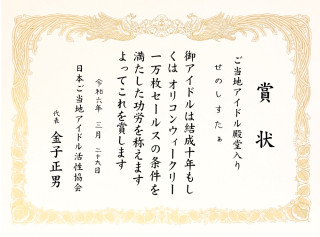 賞状
ご当地アイドル殿堂入り
せのしすたぁ
御アイドルは結成十年もし
くはオリコンウィークリー
一万枚セールスの条件を
満たした功労を称えます
よってこれを賞します
令和六年三月二十九日
日本ご当地アイドル活性協会
代表 金子正男